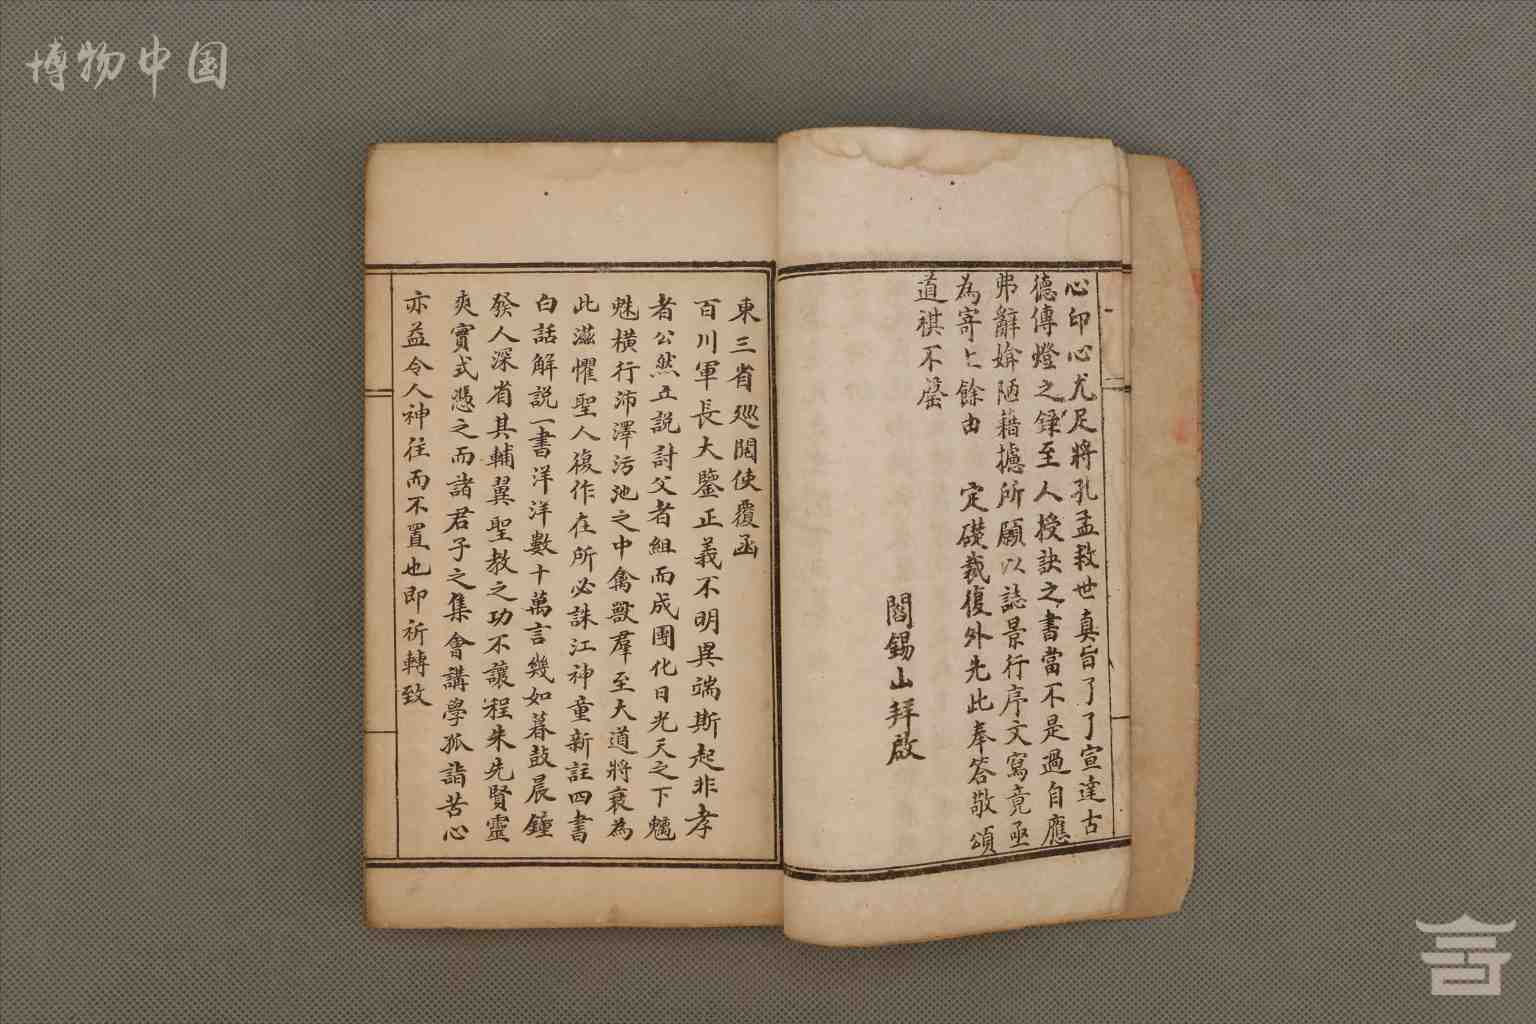 博物中国
心印心尤足將孔孟救世真旨了了宣達古
德傳燈之錄至人授訣之書當不是過自應
弗辭媕陋藉攄所願以誌景行序文寫竟亟
為寄上餘由　定礎裁復外先此奉答敬頌
道祺不罄
閻錫山拜啟
東三省巡閱使覆函
百川軍長大鑒正義不明異端斯起非孝
者公然立說討父者組而成團化日光天之下魑
魅橫行沛澤污池之中禽獸羣至大道將衰為
此滋懼聖人復作在所必誅江神童新註四書
白話解説一書洋洋數十萬言幾如暮鼓晨鐘
發人深省其輔翼聖教之功不讓程朱先賢靈
爽實式憑之而諸君子之集會講學孤詣苦心
亦益令人神往而不置也即祈轉致